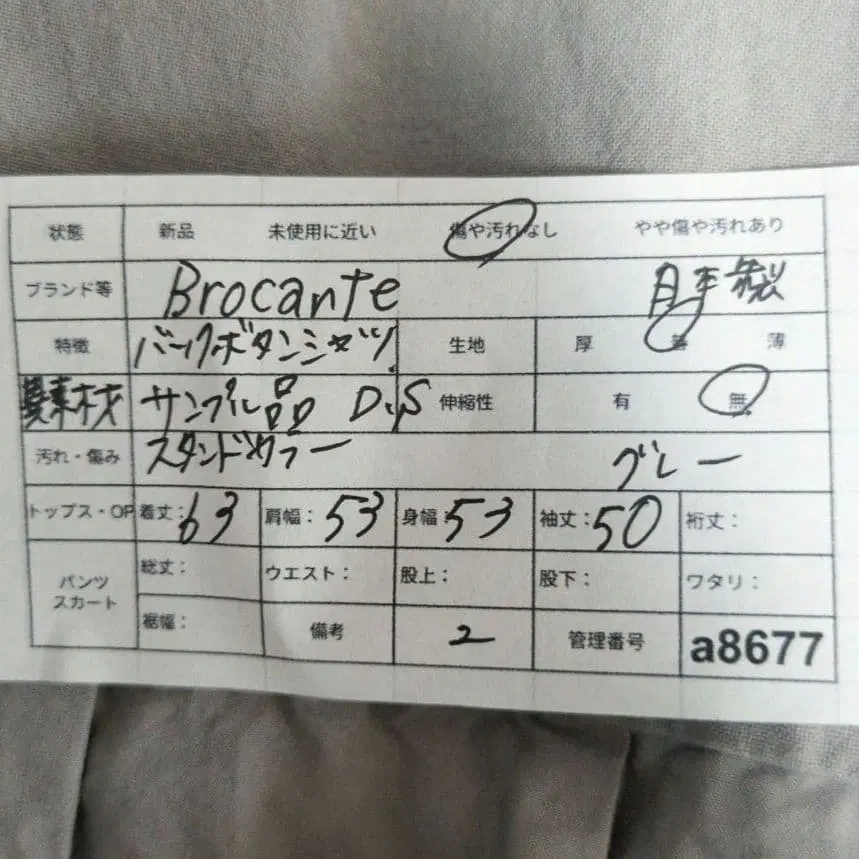 状態 新品 未使用に近い 傷や汚れなし やや傷や汚れあり
ブランド等 Brocante 日本製
特徴 バックボタンシャツ 生地 厚 普 薄
異素材 サンプル品 D.S 伸縮性 有 無
汚れ・傷み スタンドカラー グレー
トップス・OP 着丈:63 肩幅:53 身幅:53 袖丈:50 裄丈:
パンツ スカート 総丈: ウエスト: 股上: 股下: ワタリ:
裾幅: 備考 2 管理番号 a8677